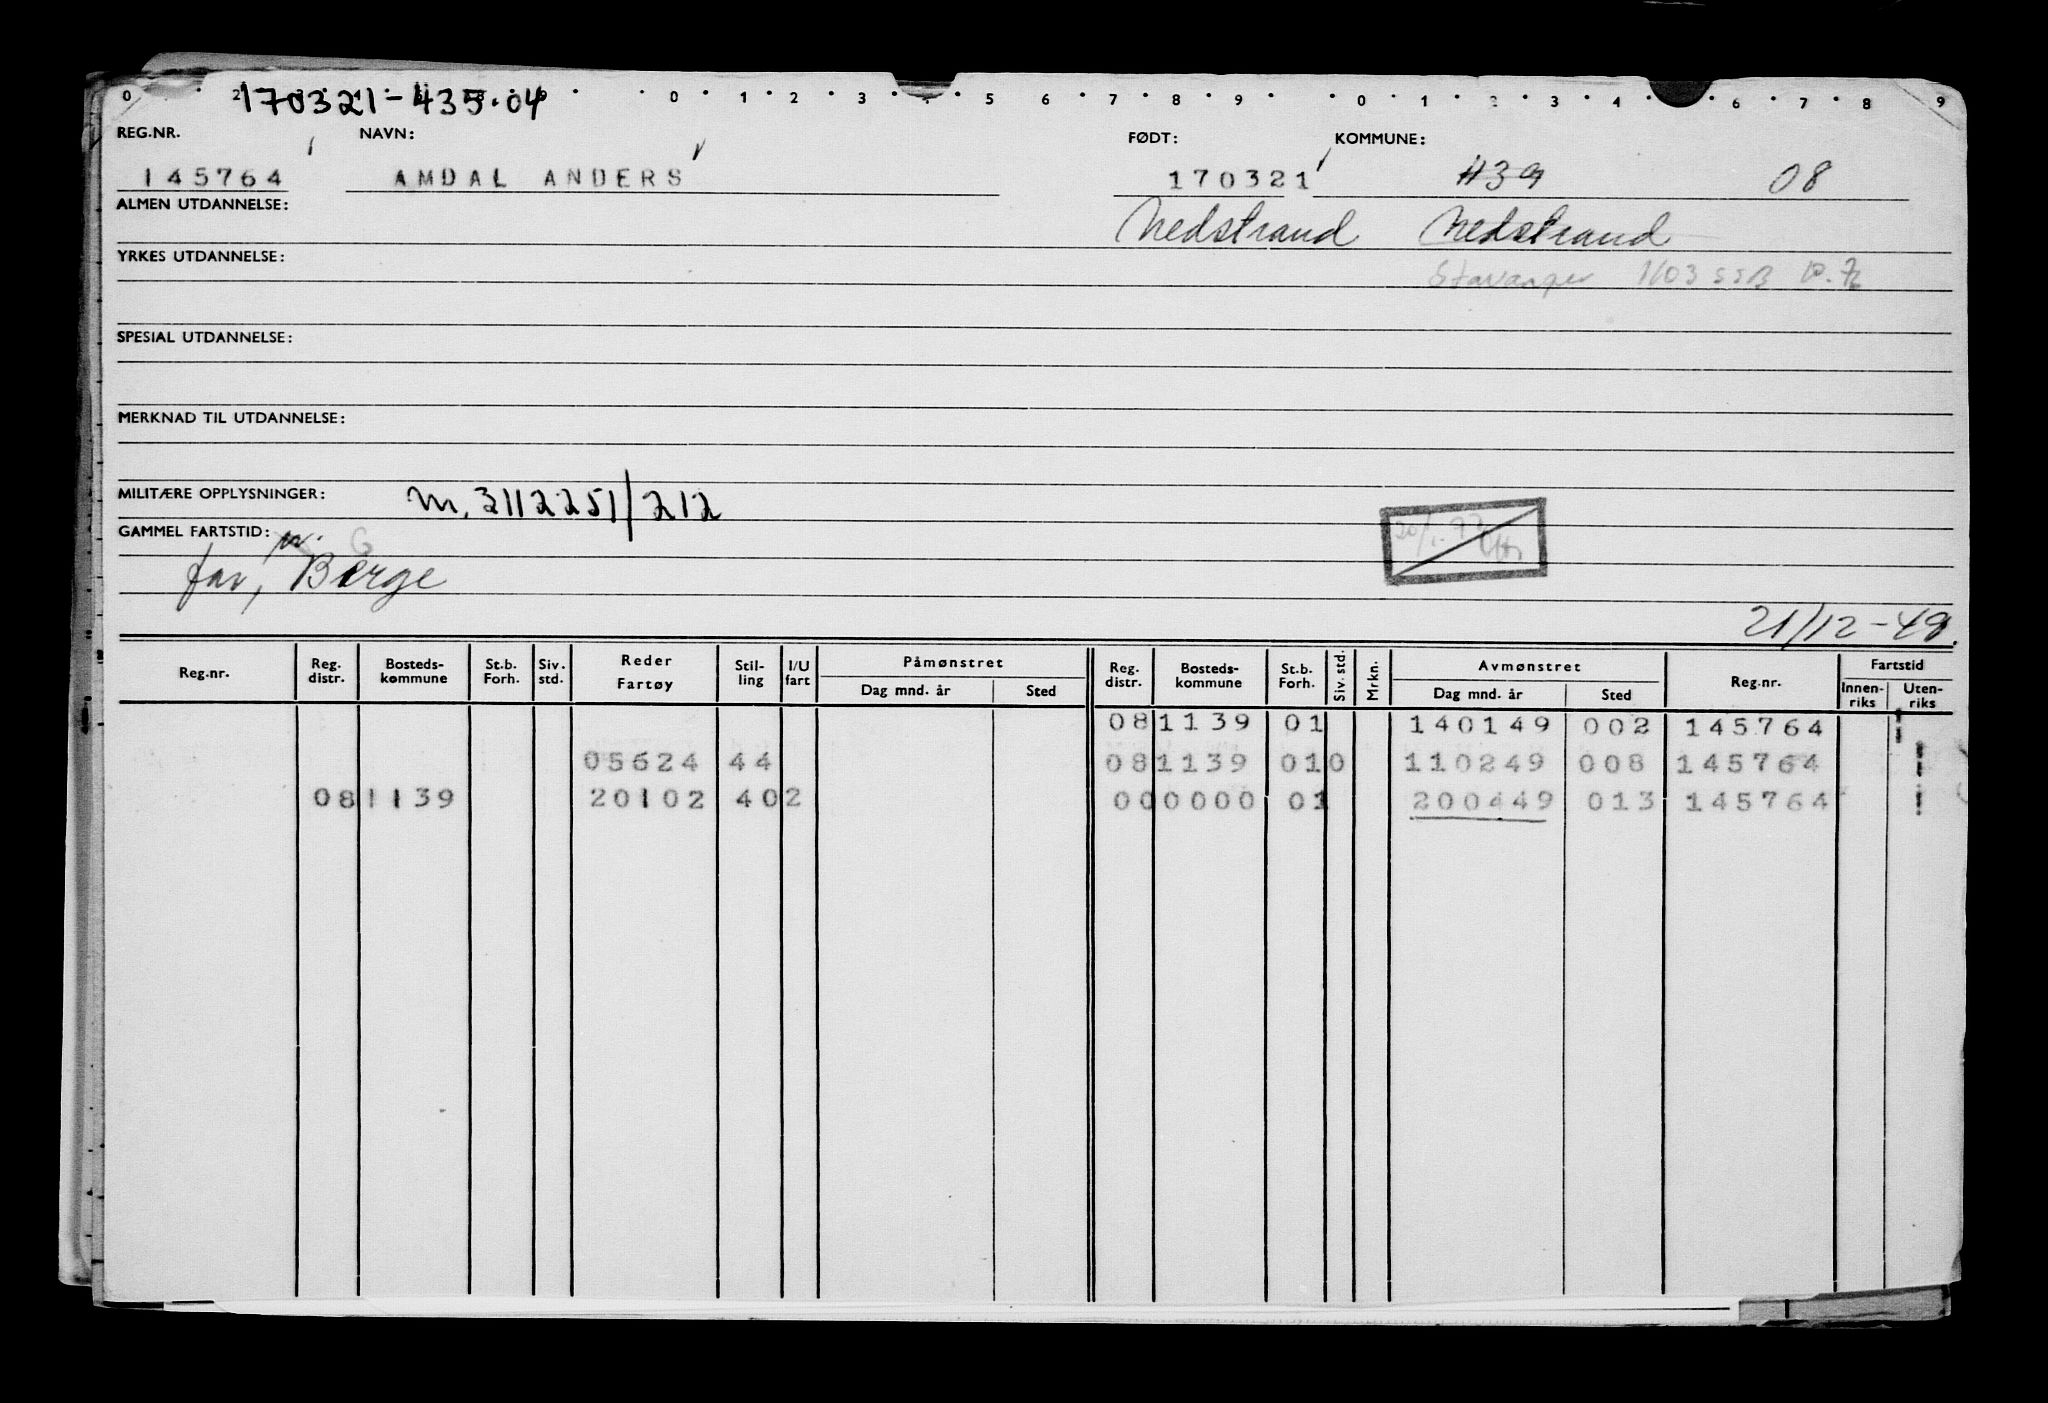 170321-435.04
0 2 0 1 2 3 4 5 6 7 8 9 0 1 2 3 4 6 7 8 9
REG.NR. NAVN: FØDT: KOMMUNE:
145764 AMDAL ANDERS 170321 439 08
ALMEN UTDANNELSE: Nedstrand Nedstrand
YRKES UTDANNELSE: Stavanger 1103 SSB
SPESIAL UTDANNELSE:
MERKNAD TIL UTDANNELSE:
MILITÆRE OPPLYSNINGER: M. 3112251/212
GAMMEL FARTSTID:
far, Berge
21/12-49.
Reg.nr. Reg. distr. Bosteds-kommune St.b. Forh. Siv. std. Reder Fartøy Stil-ling I/U fart Påmønstret Dag mnd. år Sted Reg. distr. Bosteds-kommune St.b. Forh. Siv. std. Mrkn. Avmønstret Dag mnd. år Sted Reg.nr. Fartstid Innen-riks Uten-riks
081139 01 140149 002 145764
05624 44 081139 010 110249 008 145764
081139 20102 402 000000 01 200449 013 145764